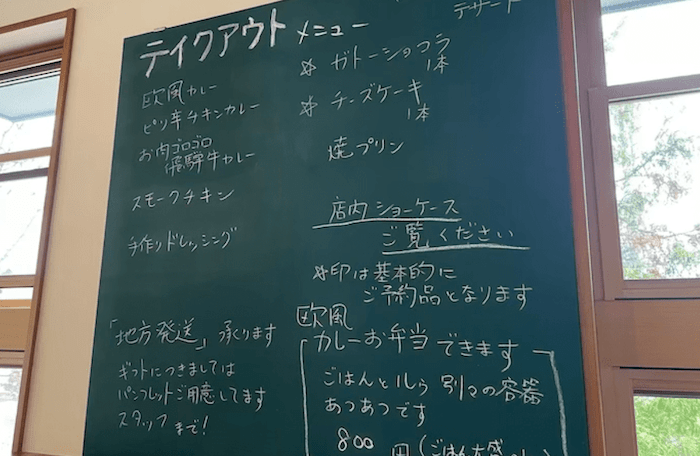 テイクアウト メニュー
欧風カレー
ピリ辛チキンカレー
お肉ゴロゴロ
飛騨牛カレー
スモークチキン
手作りドレッシング
「地方発送」承ります
ギフトにつきましては
パンフレットご用意してます
スタッフまで!
デザート
☆ ガトーショコラ
1本
☆ チーズケーキ
1本
焼プリン
店内ショーケース
ご覧ください
☆印は基本的に
ご予約品となります
欧風
カレーお弁当できます
ごはんとルウ 別々の容器
あつあつです
800 円(ごはん大盛